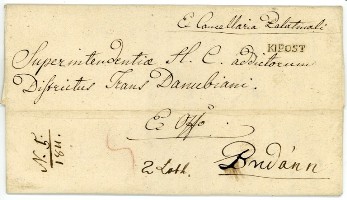 Ex Cancellaria Palatinali
KIPOST
Superintendentiæ H. C. addictorum
Districtus Trans Danubiani.
Ex Offo.
N. 5.
1811.
2 Loth.